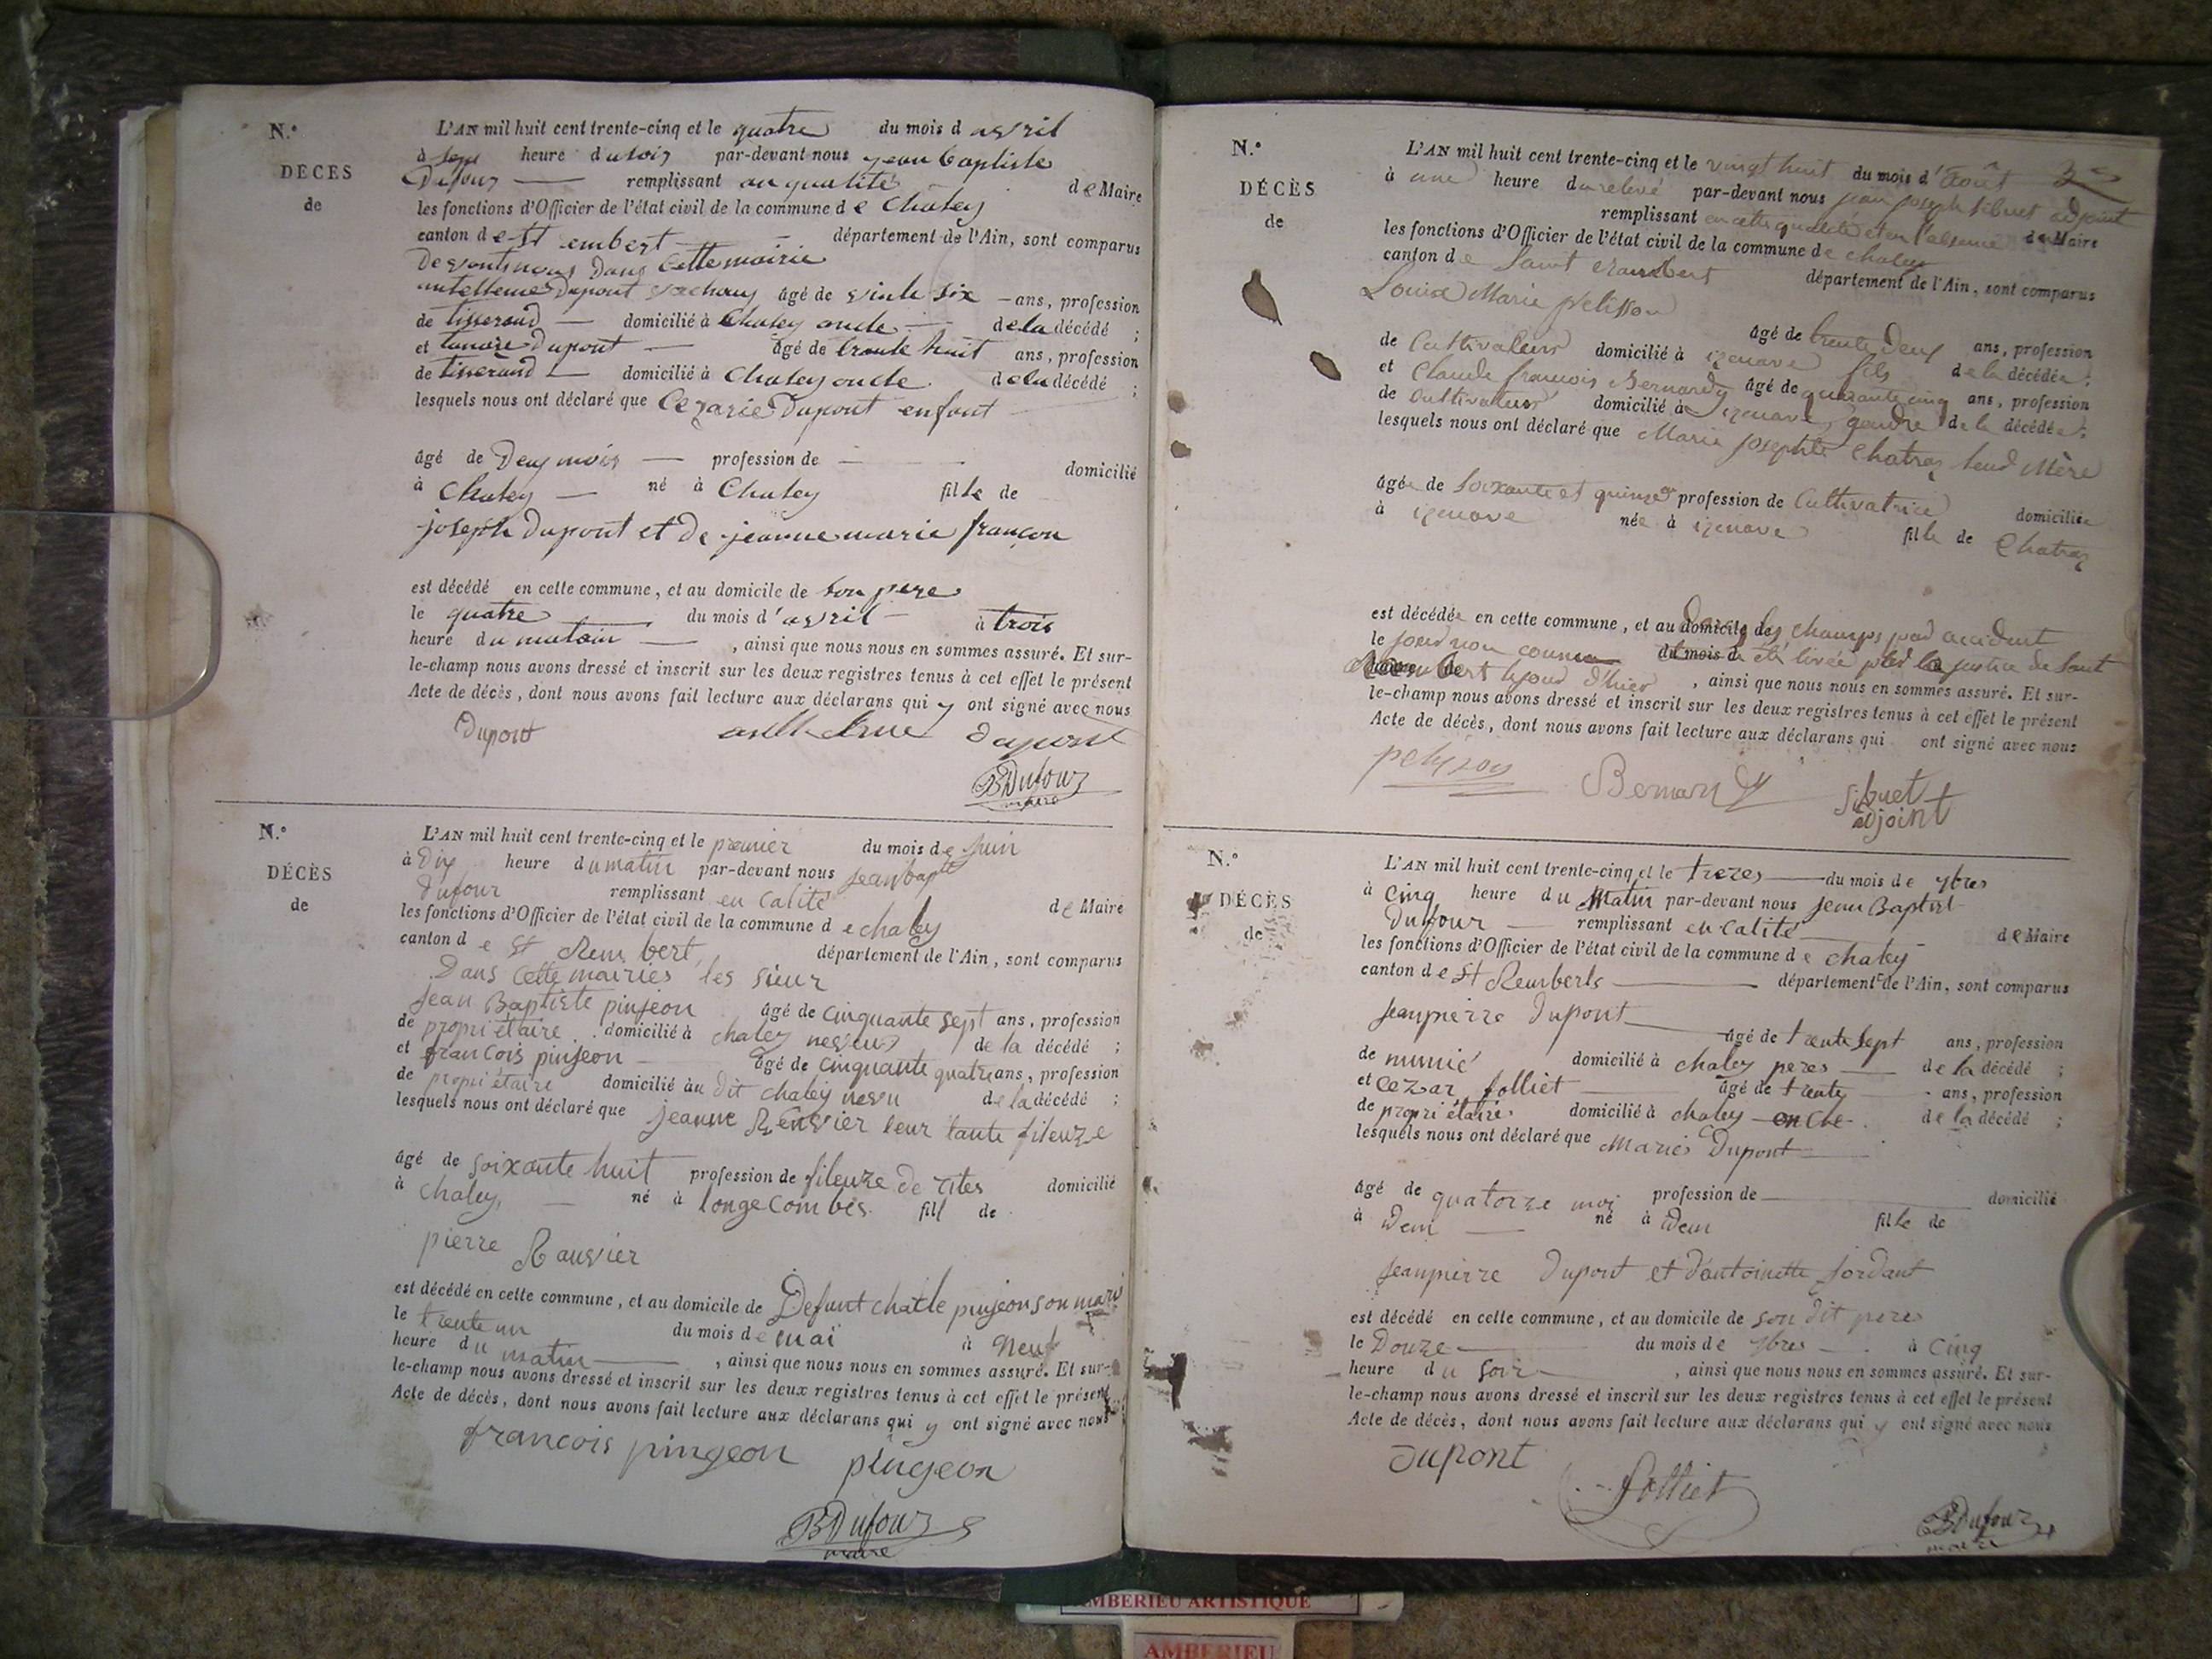 N.°
DÉCÈS
de
L'AN mil huit cent trente-cinq et le quatre du mois d avril
à sept heure du soir par-devant nous jean baptiste
Dufour remplissant en qualité de Maire
les fonctions d'Officier de l'état civil de la commune de Chaley
canton de st embert département de l'Ain, sont comparus
devont nous dans cette mairie
antelleme Dupont âgé de vinte six ans, profession
de tisserand domicilié à Chaley oncle de la décédé ;
et Dupont âgé de trante huit ans, profession
de tisserand domicilié à Chaley oncle de la décédé ;
lesquels nous ont déclaré que Cezarie Dupont enfant
âgé de Deux mois profession de domicilié
à Chaley né à Chaley fille de
joseph Dupont et de jeanne marie françon
est décédé en cette commune, et au domicile de son pere
le quatre du mois d'avril à trois
heure du matain , ainsi que nous nous en sommes assuré. Et sur-
le-champ nous avons dressé et inscrit sur les deux registres tenus à cet effet le présent
Acte de décès, dont nous avons fait lecture aux déclarans qui y ont signé avec nous
Dupont dupont
BDufour
maire
N.°
DÉCÈS
de
L'AN mil huit cent trente-cinq et le premier du mois de juin
à Dix heure du matin par-devant nous jean bapte
Dufour remplissant en calité de Maire
les fonctions d'Officier de l'état civil de la commune de chaley
canton de st Rembert département de l'Ain, sont comparus
Dans cette mairies les sieur
jean Baptiste pinjeon âgé de cinquante sept ans, profession
de propriétaire domicilié à chaley neveu de la décédé ;
et francois pinjeon âgé de cinquante quatre ans, profession
de propriétaire domicilié au dit chaley neveu de la décédé ;
lesquels nous ont déclaré que jeanne Renvier leur tante fileuze
âgé de soixante huit profession de fileuze de rites domicilié
à chaley né à longecombes fill de
pierre Rauvier
est décédé en cette commune, et au domicile de Defunt charle pinjeon son mari
le trente un du mois de mai à neuf
heure du matin , ainsi que nous nous en sommes assuré. Et sur-
le-champ nous avons dressé et inscrit sur les deux registres tenus à cet effet le présent
Acte de décès, dont nous avons fait lecture aux déclarans qui y ont signé avec nous
francois pingeon pingeon
BDufour
maire
N.°
DÉCÈS
de
L'AN mil huit cent trente-cinq et le vingt huit du mois d'Août
à une heure du relevé par-devant nous jean joseph sibuet adjoint
remplissant en cette qualité et en l'absence de Maire
les fonctions d'Officier de l'état civil de la commune de chaley
canton de Saint rambert département de l'Ain, sont comparus
Louis Marie pelisson
âgé de trente deux ans, profession
de Cultivateur domicilié à izenave fils de la décédée ;
et Claude françois Bernardy âgé de quarante cinq ans, profession
de cultivateur domicilié à izenave gendre de la décédée ;
lesquels nous ont déclaré que Marie josephte Chatraz leur Mère
âgée de soixante et quinze profession de Cultivatrice domiciliée
à izenave née à izenave fille de Chatraz
est décédée en cette commune, et au domicile de dans les champs par accident
le jour non connu du mois de et été livée par la justice de saint
rambert le jour d'hier , ainsi que nous nous en sommes assuré. Et sur-
le-champ nous avons dressé et inscrit sur les deux registres tenus à cet effet le présent
Acte de décès, dont nous avons fait lecture aux déclarans qui ont signé avec nous
pelisson Bernardy sibuet
adjoint
N.°
DÉCÈS
de
L'AN mil huit cent trente-cinq et le trezes du mois de 7bres
à cinq heure du Matin par-devant nous jean Baptist
Dufour remplissant en calité de Maire
les fonctions d'Officier de l'état civil de la commune de chaley
canton de st Remberts département de l'Ain, sont comparus
jeanpierre Dupont
âgé de trente sept ans, profession
de munié domicilié à chaley peres de la décédé ;
et cezar folliet âgé de trente ans, profession
de propriétaire domicilié à chaley oncle de la décédé ;
lesquels nous ont déclaré que Maries Dupont
âgé de quatorze moi profession de domicilié
à idem né à idem fille de
jeanpierre Dupont et d'antoinette jordant
est décédé en cette commune, et au domicile de son dit peres
le Douze du mois de 7bres à cinq
heure du soir , ainsi que nous nous en sommes assuré. Et sur-
le-champ nous avons dressé et inscrit sur les deux registres tenus à cet effet le présent
Acte de décès, dont nous avons fait lecture aux déclarans qui y ont signé avec nous
Dupont
folliet
BDufour
maire
AMBERIEU ARTISTIQUE
AMBERIEU